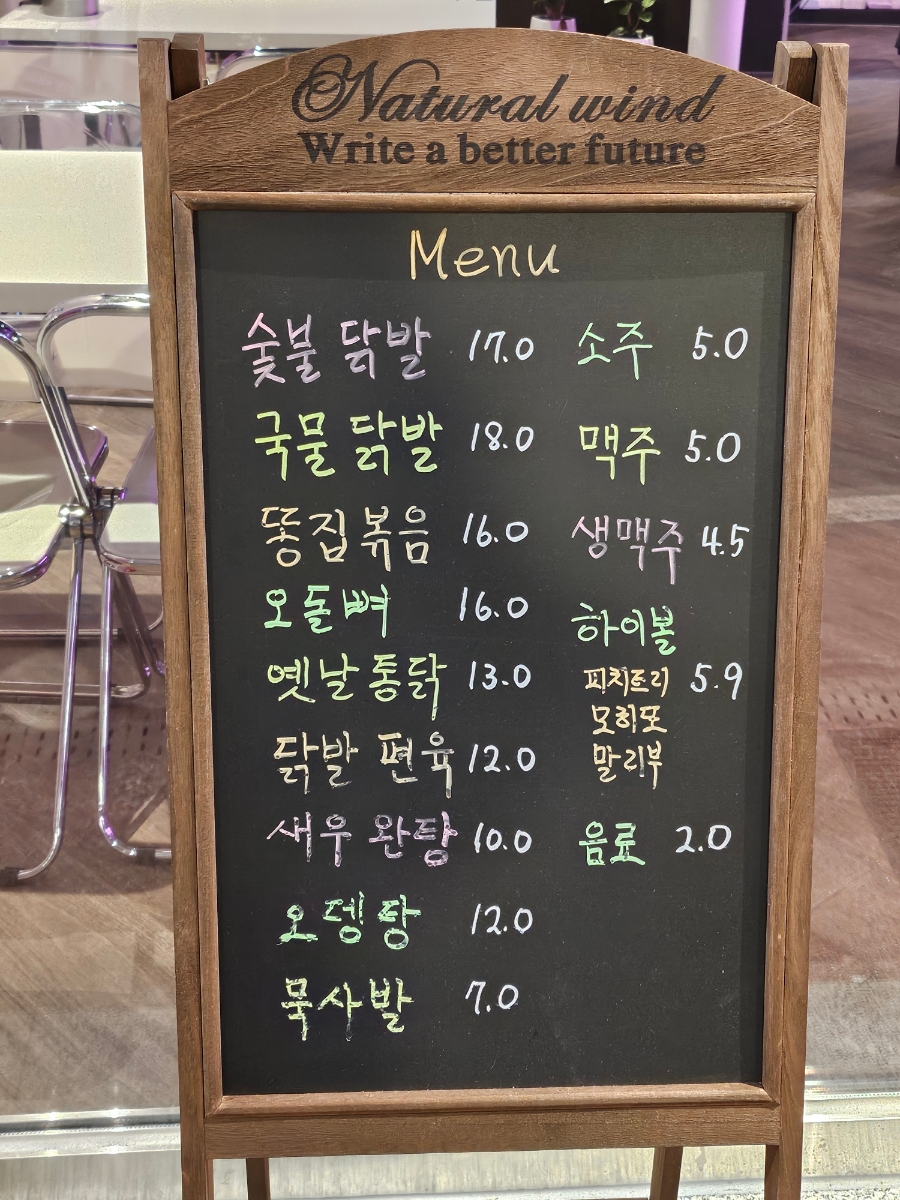 Natural wind
Write a better future
Menu
숯불 닭발 17.0
국물 닭발 18.0
똥집볶음 16.0
오돌뼈 16.0
옛날통닭 13.0
닭발 편육 12.0
새우 완탕 10.0
오뎅탕 12.0
묵사발 7.0
소주 5.0
맥주 5.0
생맥주 4.5
하이볼
피치트리 5.9
모히또
말리부
음료 2.0